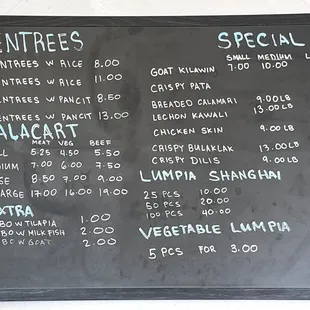 ENTREES
ENTREES W RICE 8.00
ENTREES W RICE 11.00
ENTREES W PANCIT 8.50
ENTREES W PANCIT 13.00
ALACART
MEAT VEG BEEF
5.25 4.50 5.50
7.00 6.00 7.50
8.50 7.00 9.00
17.00 16.00 19.00
EXTRA
W TILAPIA 1.00
W MILKFISH 2.00
W GOAT 2.00
SPECIAL
SMALL MEDIUM
GOAT KILAWIN 7.00 10.00
CRISPY PATA
BREADED CALAMARI 9.00LB
LECHON KAWALI 13.00LB
CHICKEN SKIN 9.00LB
CRISPY BULAKLAK 13.00LB
CRISPY DILIS 9.00LB
LUMPIA SHANGHAI
25 PCS 10.00
50 PCS 20.00
100 PCS 40.00
VEGETABLE LUMPIA
5 PCS FOR 3.00